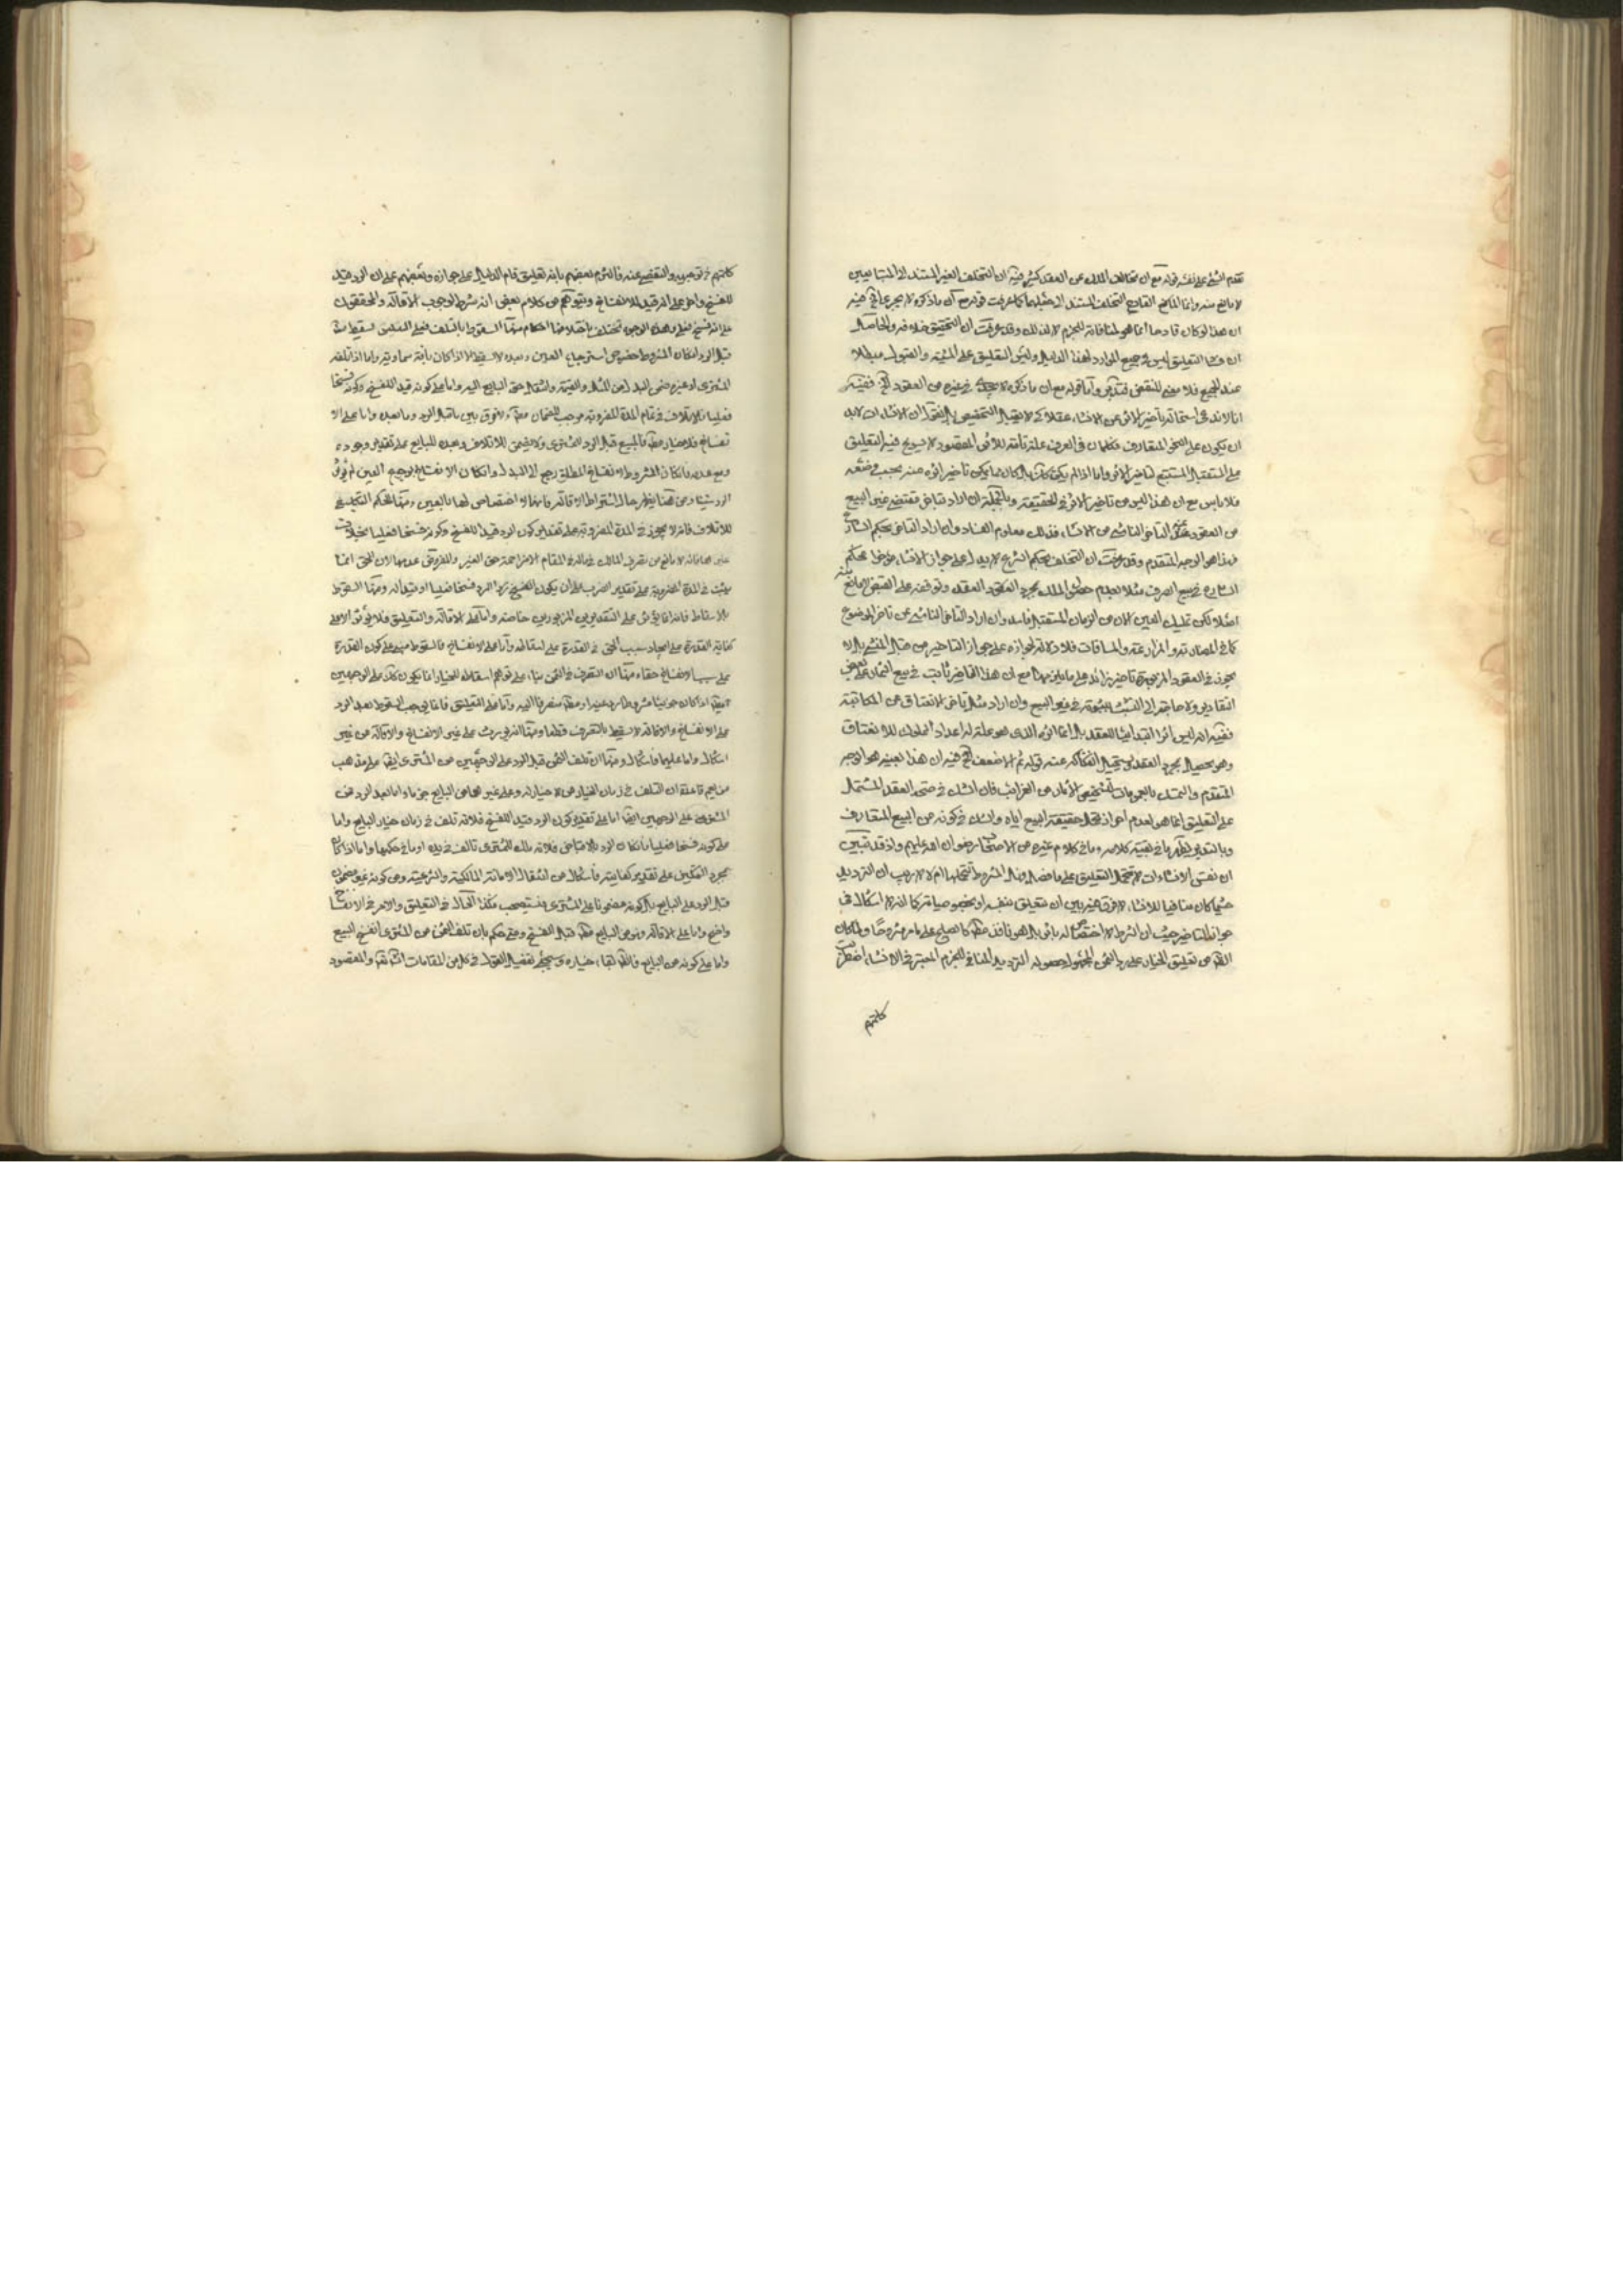 تقدم الشئ على نفسه قوله مع ان تخالف الملك عن العقد كثير فيه ان التخلف الغير المستند الى المتبايعين
لا مانع منه وانما المانع التخلف المستند الى جعلهما كما عرفت قوله مع ان ما ذكره لا يجرى الخ فيه
ان هذا لو كان قادحا انما هو لمنافاته للجزم لا لذلك وقد عرفت ان التحقيق خلافه والحاصل
ان التعليق ليس في جميع الموارد لهذا الدليل وليس التعليق على المشية والقبول مبطلا
عند الجميع فلا معنى للنقض فتدبر واما قوله مع ان ما ذكره لا يجرى في غيره من العقود الخ ففيه
انا لا ندعى استحالة تاخير الاثر عن الانشاء عقلا كى لا يقبل التخصيص بل نقول ان الانشاءات لا بد
ان تكون على النحو المتعارف فكلما كان في العرف علة تامة للاثر المقصود لا يسوغ فيه التعليق
على المستقبل المستتبع لتاخير الاثر واما اذا لم يكن كذلك بل كان مما يكن تاخير اثره عنه بحسب وضعه
فلا باس مع ان هذا ليس من تاخير الاثر في الحقيقة وبالجملة ان اراد تراخى مقتضى غير البيع
من العقود التراخى الناشى من الانشاء فذلك معلوم الفساد وان اراد التراخى بحكم الشارع
فهذا هو الوجه المتقدم وقد عرفت ان التخلف بحكم الشرع لا يدل على جواز الانشاء
الشارع في بيع الصرف مثلا بعدم حصول الملك بمجرد العقد وتوقفه على القبض لا مانع منه
اصلا لكن تمليك العين الان من الزمان المستقبل فاسد وان اراد التراخى الناشى عن تاخر الموضوع
كما في المضاربة والمزارعة والمساقات فلا دلالة لجوازه على جواز التاخير من قبل المنشى بل لا
يجوز في العقود المزبورة تاخير زائد على ما يلزمها مع ان هذا التاخير ثابت في بيع الثمار على بعض
التقادير ولا حاجة الى التشبث بثبوته في غير البيع وان اراد مثل تراخى الانعتاق عن المكاتبة
ففيه انه ليس اثرا ابتدائيا للعقد بل انما اثره الذى هو علة له اعداد المملوك للانعتاق
وهو يحصل بمجرد العقد ويستحيل انفكاكه عنه قوله ثم الاضعف الخ فيه ان هذا بعينه هو الوجه
المتقدم والتمسك بالعمومات من الغرائب فان الشك في صحة العقد المشتمل
على التعليق انما هو لعدم احراز حقيقة البيع اياه والشك في كونه من البيع المتعارف
وبالتدبر يظهر ما في بقية كلامه وما في كلام غيره من الاصحاب رضوان الله عليهم واذ قد تبين
ان نفس الانشاءات لا تتحمل التعليق على ما فصل فهل الشروط تتحملها ام لا لا ريب ان الترديد
حيثما كان منافيا للانشاء لا فرق فيه بين ان يتعلق بنفسه او بخصوصياته كما انه لا اشكال في
جواز التاخير حيث ان الشرط لا اختصاص له باثر بل هو نافذ مطلقا كالصلح على ما مر مشروحا ولما كان
الظاهر من تعليق الخيار على رد الثمن المجهول حصوله الترديد المنافى للجزم المعتبر في الانشاء اضطربت
كلماتهم
كلماتهم في توجيهه والتفصى عنه فالتزم بعضهم بانه تعليق قام الدليل على جوازه وبعضهم على ان الرد قيد
للفسخ واخر على انه قيد للانفساخ ويتوهم من كلام بعض انه شرط لوجوب الاقالة والمحققون
على انه فسخ فعلى وهذه الوجوه تختلف باختلافها احكام منها السقوط بالتلف فعلى التعليق يسقط
قبل الرد ان كان المشروط خصوص استرجاع العين وبعده لا يسقط الا اذا كان بافة سماوية واما اذا تلفه
المشترى او غيره ضمن البدل من المثل والقيمة وانتقل حق البايع اليه واما على كونه قيدا للفسخ وكونه فسخا
فعليا فالاتلاف في تمام المدة المضروبة موجب للضمان مطلقا ولا فرق بين ما قبل الرد وما بعده واما على الا
نفساخ فلا ضمان مطلقا فالمبيع قبل الرد للمشترى ولا يضمن للاتلاف وبعده للبايع على تقدير وجوده
ومع عدمه فان كان المشروط الانفساخ المطلق رجع الى البدل وان كان الانفساخ برجع العين لم يؤثر
الرد شيئا ومن هنا يظهر حال اشتراط الاقالة فانها لا اختصاص لها بالعين ومنها الحكم التكليفى
للاتلاف فانه لا يجوز في المدة المضروبة على تقدير كون الرد قيدا للفسخ وكونه فسخا فعليا بخلاف
غيرهما فانه لا مانع من تصرف المالك في ماله في المقام الا مزاحمة حق الغير والمفروض عدمها لان الحق انما
يثبت في المدة المضروبة على تقدير الضرب على ان يكون الفسخ فيها الرد فسخا فعليا او قيدا له ومنها السقوط
بالاسقاط فانه انما يؤثر على التقديرين المزبورين خاصة واما على الاقالة والتعليق فلا يؤثر الا على
كفاية القدرة على ايجاد سبب الحق في القدرة على اسقاطه واما على الانفساخ فالسقوط مبنى على كون القدرة
على سبب الانفساخ حقا ومنها ان التصرف في الثمن بناء على توهم اسقاطه للخيار انما يكون كذلك على الوجهين
ايضا اذا كان جزئيا مشروطا رد عينه او مطلقا منصرفا اليه واما على التعليق فانما يوجب السقوط بعد الرد
على الانفساخ والاقالة لا يسقط بالتصرف قطعا ومنها انه يورث على غير الانفساخ والاقالة من غير
اشكال واما عليهما فاشكال ومنها ان تلف الثمن قبل الرد على الوجهين من المشترى ايضا على مذهب
من اجرى قاعدة ان التلف في زمان الخيار ممن لا خيار له وعلى غيرهما من البايع جزما واما بعد الرد فمن
المشترى على الوجهين ايضا اما على تقدير كون الرد قيد اللفسخ فلانه تلف في زمان خيار البايع واما
على كونه فسخا فعليا فان كان الرد بالاقباض فلانه ملك للمشترى تالف في يده او ما في حكمها واما اذا كان
بمجرد التمكين على تقدير كفايته فاشكال من انتقال الامانة المالكية والشرعية ومن كونه غير مضمون
قبل الرد على البايع بل كونه مضمونا على المشترى فيستصحب هكذا الحال في التعليق والامر في الانفساخ
واضح واما على الاقالة فهو من البايع مطلقا قبل الفسخ ومتى حكم بان تلف الثمن من المشترى انفسخ البيع
واما على كونه من البايع فالظاهر بقاء خياره وسيجئ تفصيل القول في كل من المقامات انشاء الله والمقصود